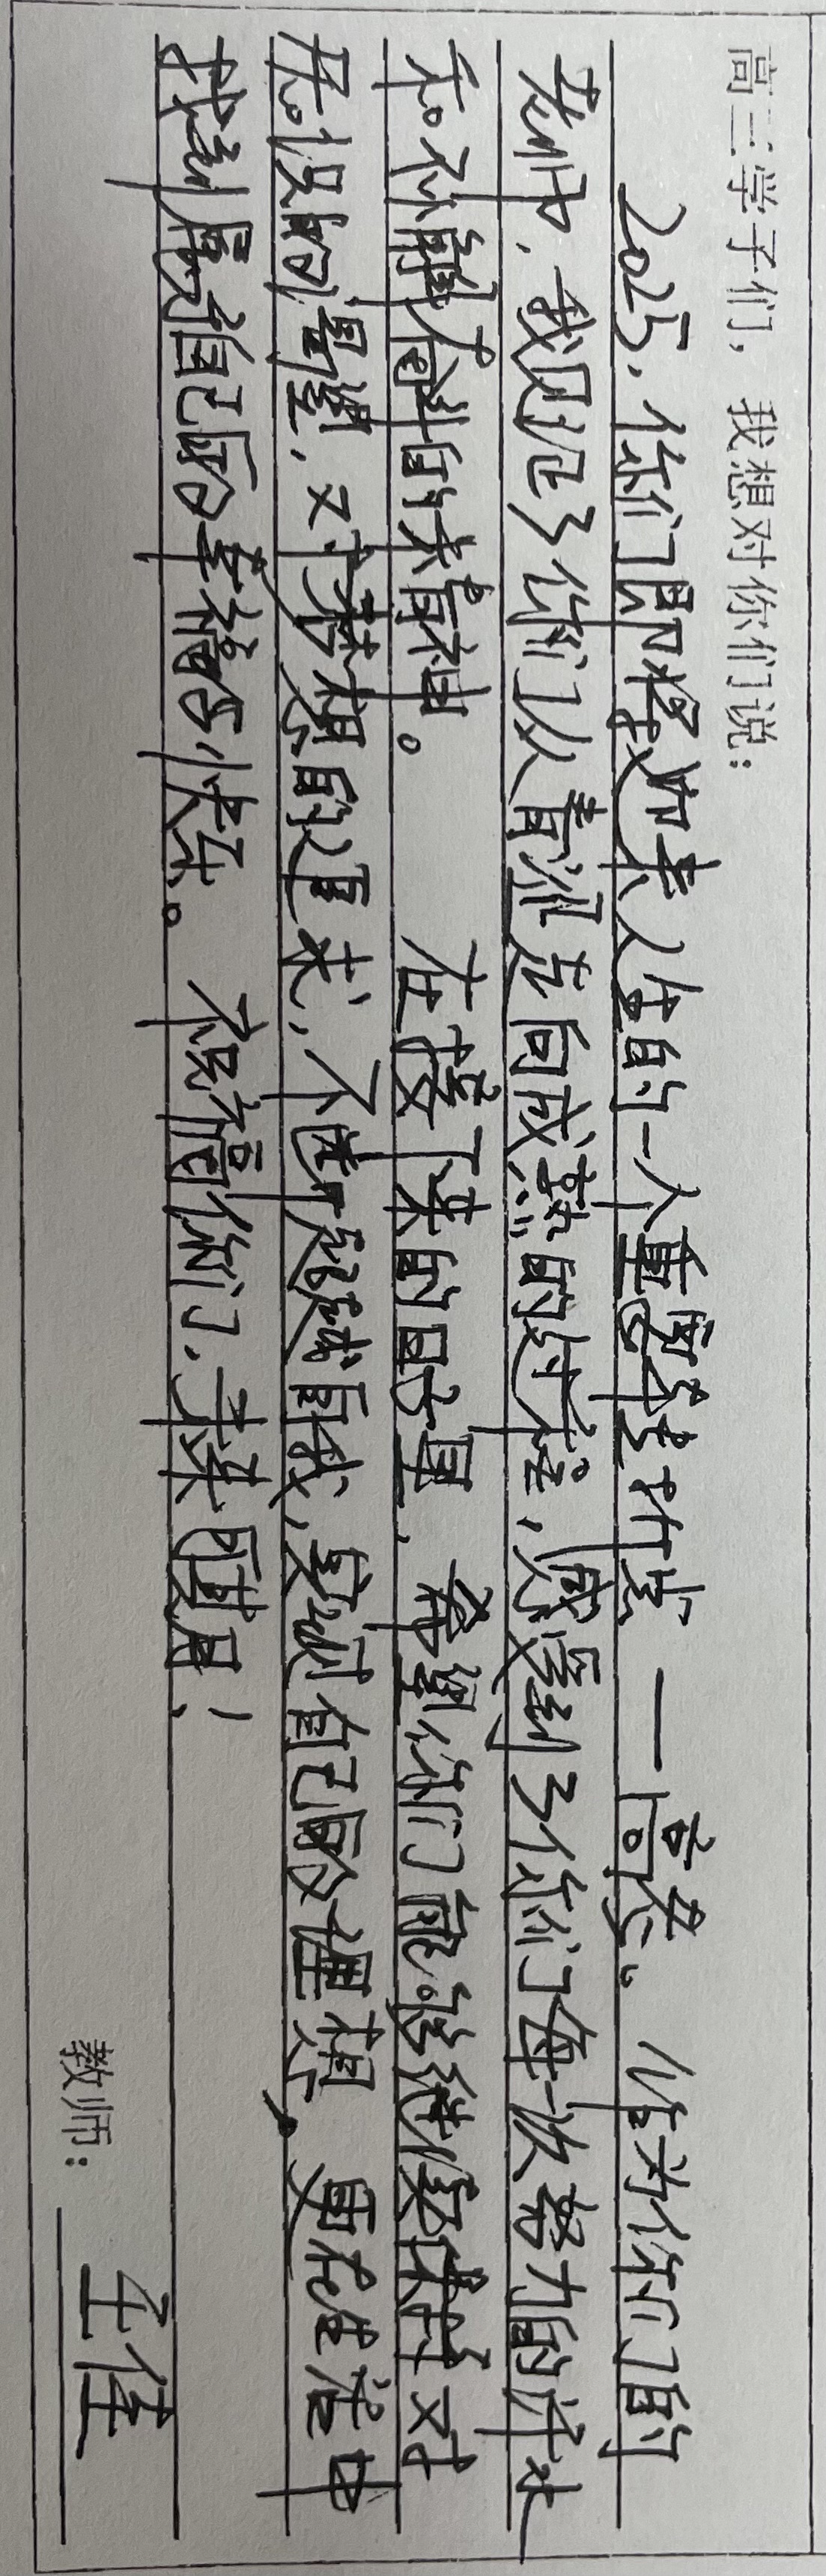 高三学子们，我想对你们说：
2025，你们即将迎来人生的一个重要转折点——高考。作为你们的
老师，我见证了你们从青涩走向成熟的过程，感受到了你们每一次努力的汗水
和不懈奋斗的精神。 在接下来的日子里，希望你们能够继续保持对
知识的渴望，对梦想的追求，不断突破自我，实现自己的理想，更在生活中
找到属于自己的幸福与快乐。祝福你们，未来可期！
教师：王佳